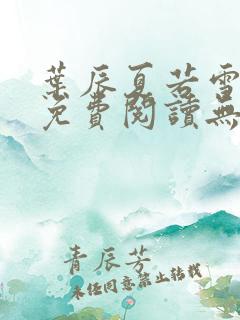 葉辰夏若雪
免費閱讀無
青辰芳
未經同意禁止轉載